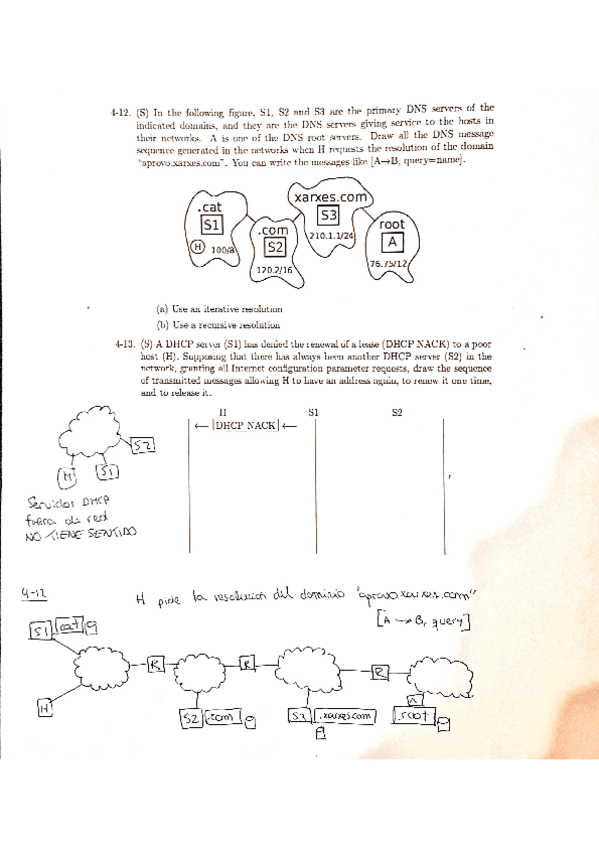 4-12. (S) In the following figure, S1, S2 and S3 are the primary DNS servers of the
indicated domains, and they are the DNS servers giving service to the hosts in
their networks. A is one of the DNS root servers. Draw all the DNS message
sequence generated in the networks when H requests the resolution of the domain
"aprovo.xarxes.com". You can write the messages like [A→B, query=name].
.cat
S1
H 100/8
.com
S2
120.2/16
xarxes.com
S3
210.1.1/24
root
A
76.75/12
(a) Use an iterative resolution
(b) Use a recursive resolution
4-13. (S) A DHCP server (S1) has denied the renewal of a lease (DHCP NACK) to a poor
host (H). Supposing that there has always been another DHCP server (S2) in the
network, granting all Internet configuration parameter requests, draw the sequence
of transmitted messages allowing H to have an address again, to renew it one time,
and to release it.
H S1 S2
← |DHCP NACK| ←
H S1 S2
Servidor DHCP
fuera de red
NO TIENE SENTIDO
4-12
H pide la resolución del dominio "aprovo.xarxes.com"
[A → B, query]
S1 cat
R R R
H
S2 .com S3 .xarxes.com A .root